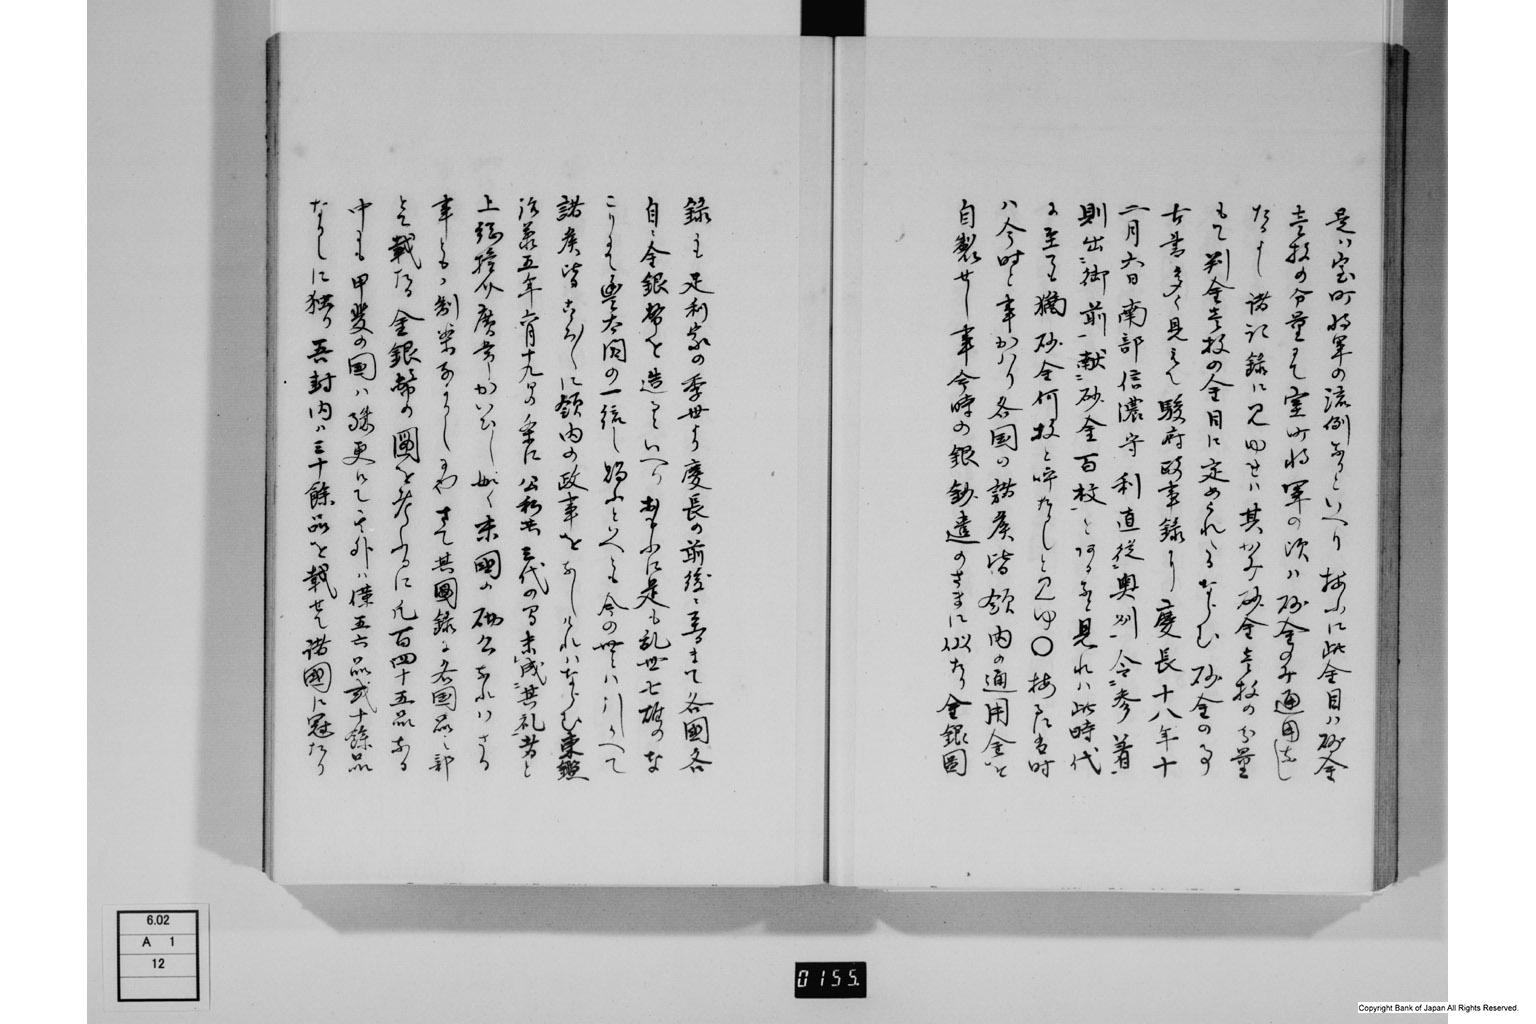 是ハ室町将軍の流例なりといへり按ふに此金目ハ砂金
壱枚の分量にて室町将軍の頃ハ砂金のみ通用をし
たるよし諸記録に見ゆれハ其かみ砂金壱枚の分量
もて判金壱枚の金目に定められたるならむ砂金の事
古書多く見えて駿府政事録に慶長十八年十
二月六日南部信濃守利直従奥州令参著
則出御前献砂金百枚とあるを見れハ此時代
に至ても猶砂金何枚と呼たりしと見ゆ〇按るに古時
ハ今時と事かハり各国の諸侯皆領内の通用金を
自製せし事今時の銀鈔遣のさまに似たり金銀図
録にも足利家の季世より慶長の前後に
至まて各国各
自に金銀幣を造るといへり おもふに是も乱世七雄のな
こりにて豊太閤の一統し賜ふといへとも今の世とハ引かへて
諸侯皆こゝろ〱に領内の政事をなしけれハならむ東鑑
治承五年
月十九日の条に公私共三代の間未成其礼者と
上総権介広常かいひし如く
事ともハ制禁なかりし
さて其図録に各国品之部
とて載たる金銀幣の図を考ふるに凡百四十五品ある
中にも甲斐の国ハ殊更にて其外ハ僅五六品或十餘品
なりしに独り吾封内ハ三十餘品を載せて諸国に冠たり
6.02
A 1
12
0155.
Copyright Bank of Japan All Rights Reserved.